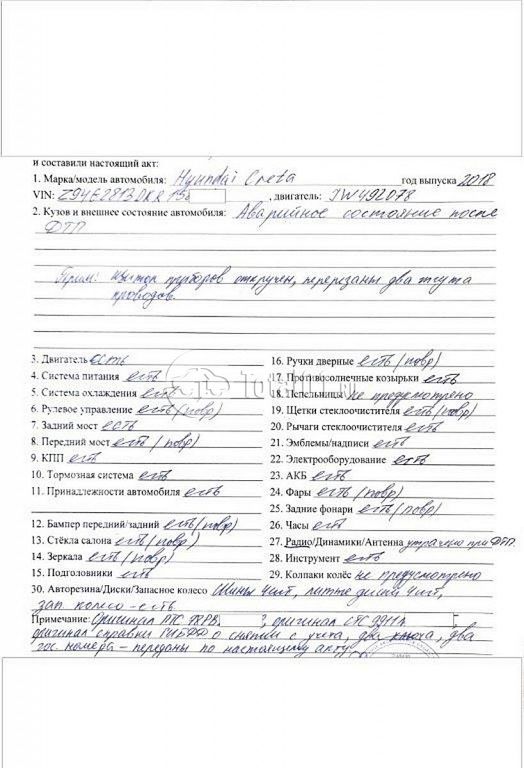 и составили настоящий акт:
1. Марка/модель автомобиля: Hyundai Creta год выпуска 2018
VIN: Z94G2813DKR15 , двигатель: JW492078
2. Кузов и внешнее состояние автомобиля: Аварийное состояние после
ДТП
Прим: щиток приборов откручен, перерезаны два жгута
проводов.
3. Двигатель есть
4. Система питания есть
5. Система охлаждения есть
6. Рулевое управление есть (повр)
7. Задний мост есть
8. Передний мост есть (повр)
9. КПП есть
10. Тормозная система есть
11. Принадлежности автомобиля есть
12. Бампер передний/задний есть (повр)
13. Стёкла салона есть (повр)
14. Зеркала есть (повр)
15. Подголовники есть
16. Ручки дверные есть (повр)
17. Противосолнечные козырьки есть
18. Пепельницы не предусмотрено
19. Щетки стеклоочистителя есть (повр)
20. Рычаги стеклоочистителя есть
21. Эмблемы/надписи есть
22. Электрооборудование есть
23. АКБ есть
24. Фары есть (повр)
25. Задние фонари есть (повр)
26. Часы есть
27. Радио/Динамики/Антенна утрачено при ДТП
28. Инструмент есть
29. Колпаки колёс не предусмотрено
30. Авторезина/Диски/Запасное колесо Шины 4шт, литые диски 4шт,
зап колесо - есть
Примечание: Оригинал ПТС , оригинал СТС 9911
оригинал справки ГИБДД о снятии с учета, два ключа, два
гос. номера - переданы по настоящему акту